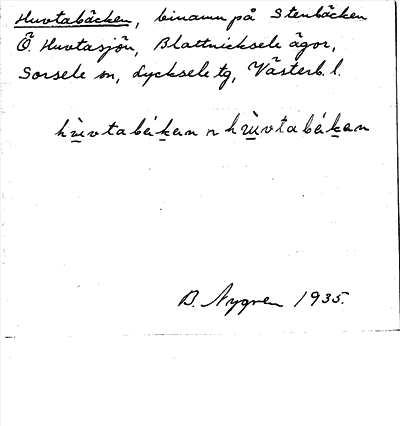 Huvtabäcken, binamn på Stenbäcken
Ö. Huvtasjön, Blattnicksele ägor,
Sorsele sn, Lycksele tg, Västerb. l.
hùvtabákan n hùvtabákan
B. Nygren 1935.